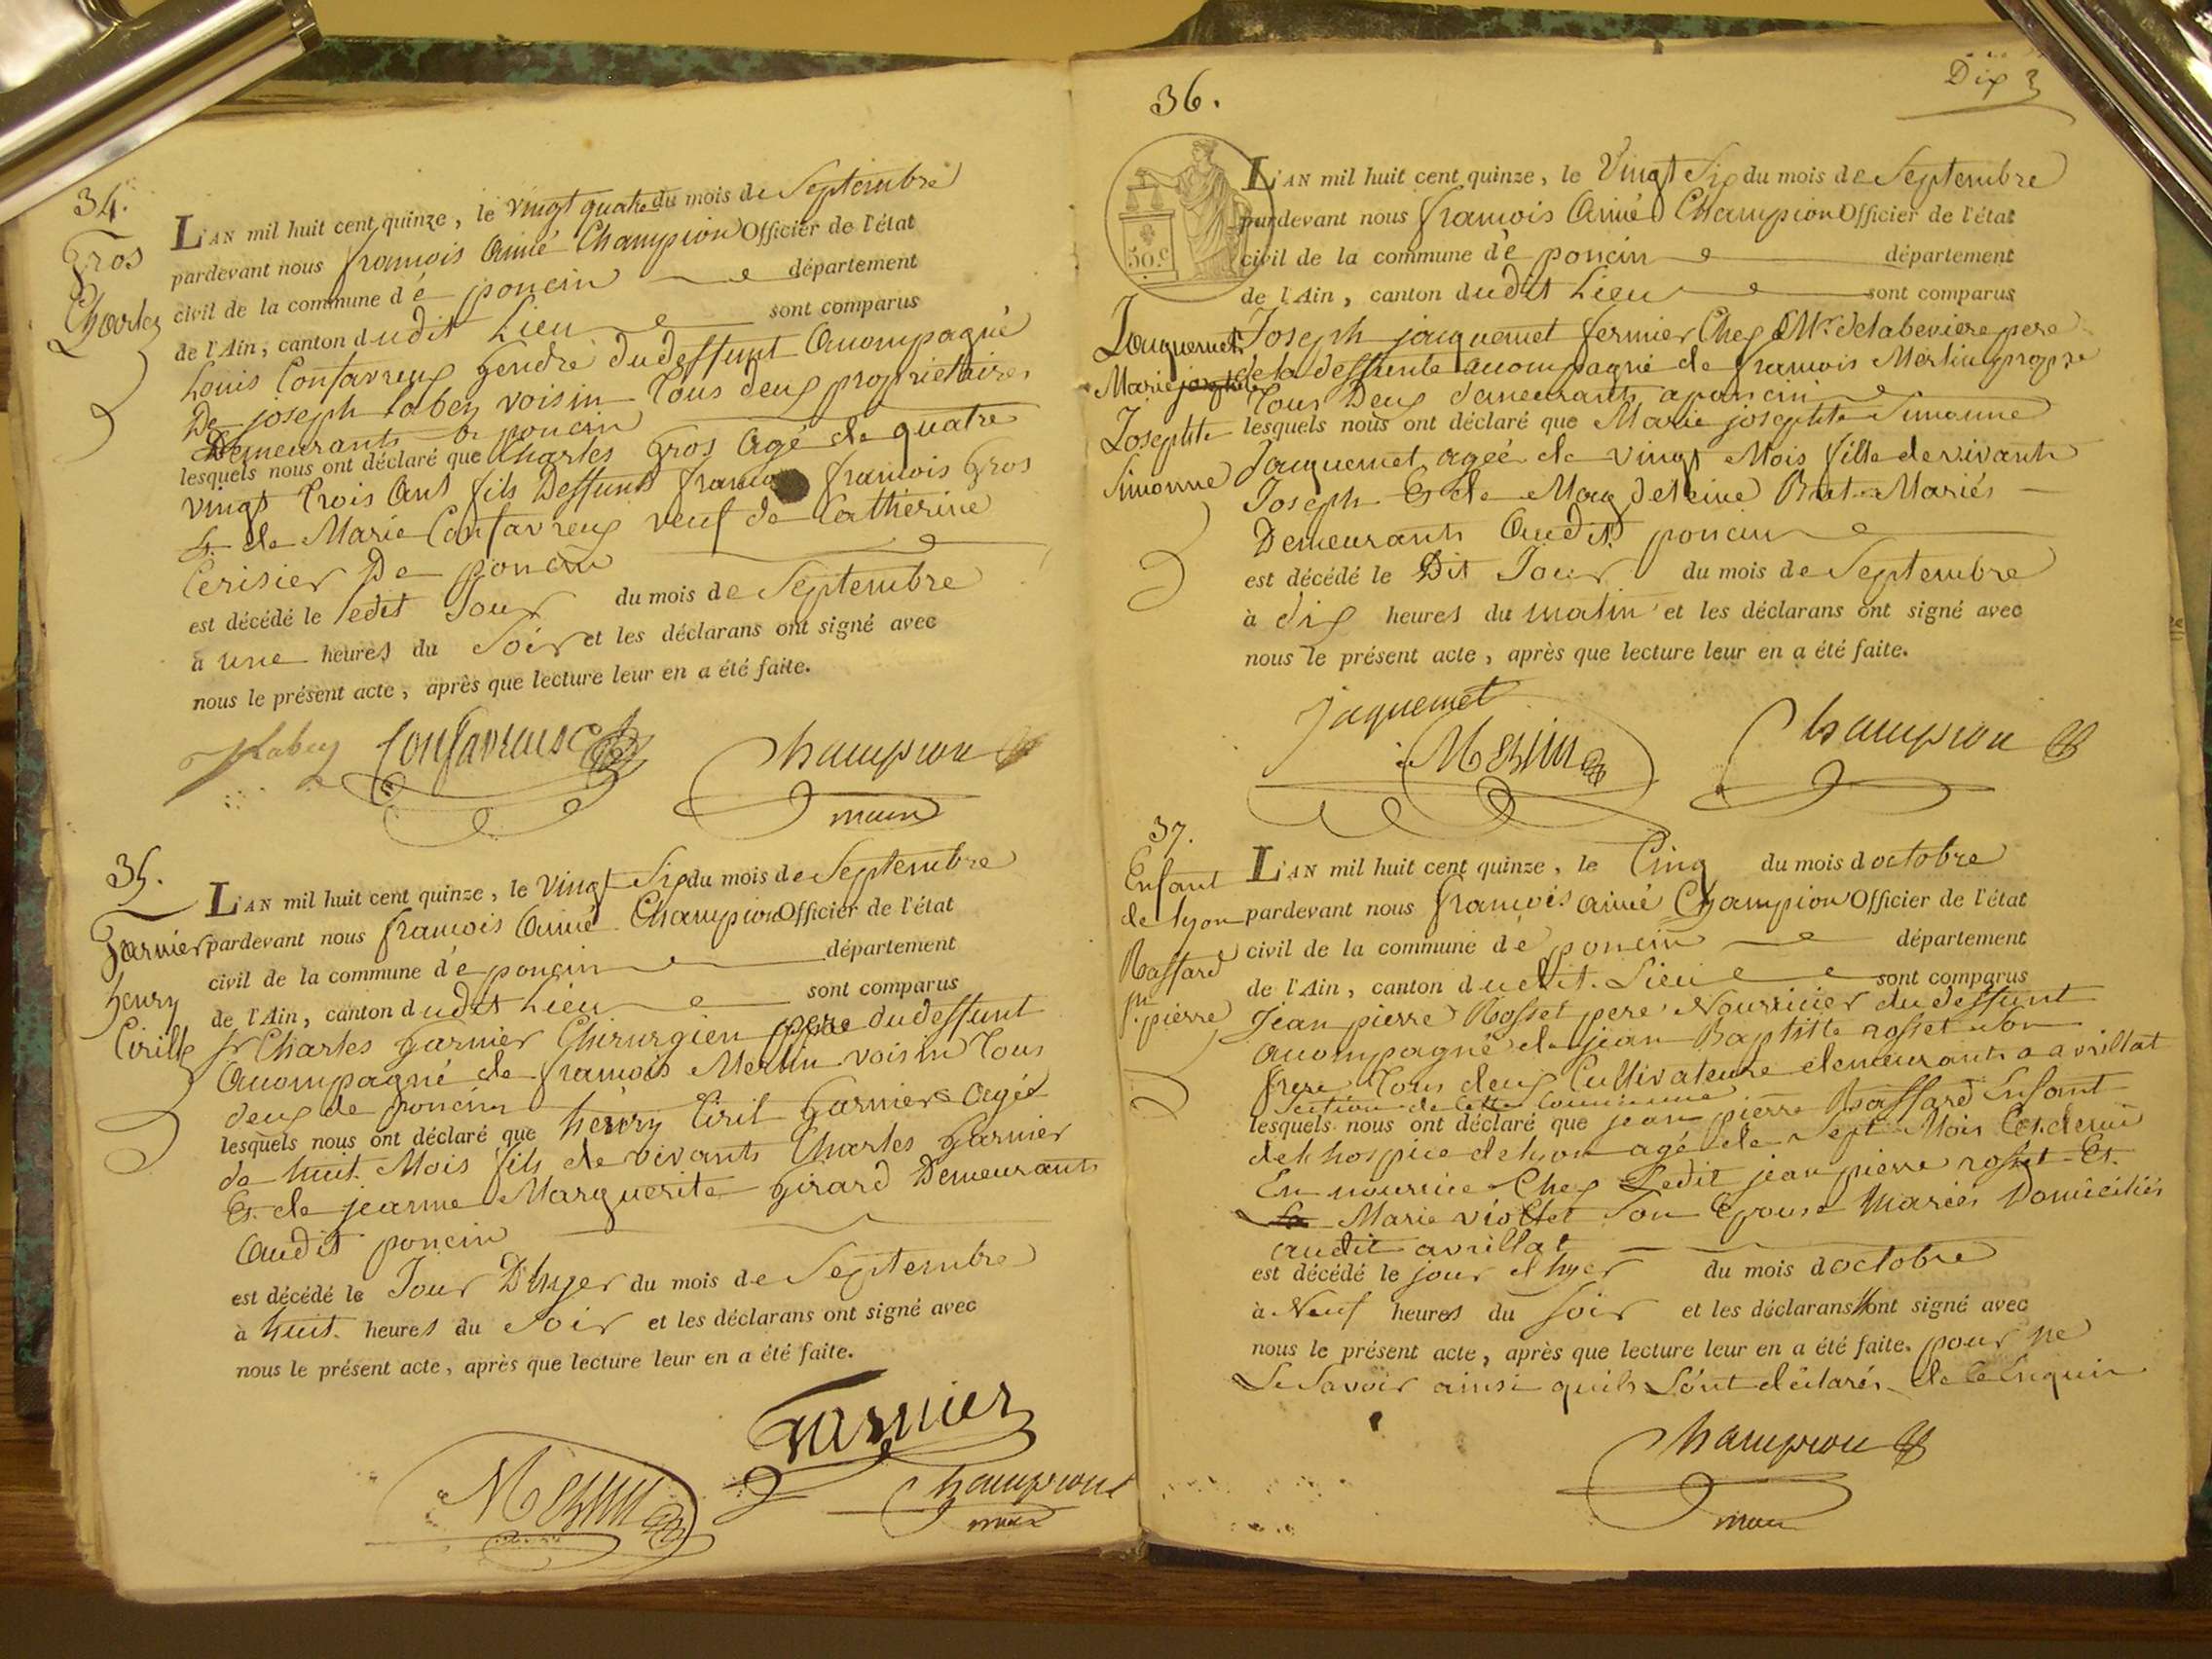 34.
Gros
Charles
L'AN mil huit cent quinze, le Vingt quatre du mois de Septembre
pardevant nous francois Aimé Champion Officier de l'état
civil de la commune dé poncin département
de l'Ain, canton dudit Lieu sont comparus
Louis Confavreux Gendre du deffunt Acompagné
De joseph labey voisin Tous deux propriétaires
Demeurants a poncin
lesquels nous ont déclaré que Charles Gros Agé de quatre
vingt Trois Ans fils Deffunts francois Gros
Et de Marie Confavreux veuf de Catherine
Cerisier De poncin
est décédé le ledit Jour du mois de Septembre
à une heures du Soir et les déclarans ont signé avec
nous le présent acte, après que lecture leur en a été faite.
Labey Confavreux Champion
maire
35.
Garnier
henry
Cirille
L'AN mil huit cent quinze, le Vingt Six du mois de Septembre
pardevant nous francois Aimé Champion Officier de l'état
civil de la commune dé poncin département
de l'Ain, canton dudit Lieu sont comparus
Sr Charles Garnier Chirurgien pere du deffunt
Acompagné de francois Merlin voisin Tous
deux de poncin
lesquels nous ont déclaré que henry Ciril Garnier Agé
de huit Mois fils de vivants Charles Garnier
Et de jeanne Marguerite Girard Demeurants
Audit poncin
est décédé le Jour D'hyer du mois de Septembre
à huit heures du Soir et les déclarans ont signé avec
nous le présent acte, après que lecture leur en a été faite.
Garnier
Merlin Champion
maire
36.
Dix
50.c
Jouquemet
Marie josephte
Josephte
Simonne
L'AN mil huit cent quinze, le Vingt Six du mois de Septembre
pardevant nous francois Aimé Champion Officier de l'état
civil de la commune dé poncin département
de l'Ain, canton dudit Lieu sont comparus
Joseph jacquemet fermier Chez Mr. delabeviere pere
de la deffunte acompagné de francois Merlin propre
Tous Deux demeurants a poncin
lesquels nous ont déclaré que Marie josephte Simonne
Jacquemet agée de vingt Mois fille de vivants
Joseph Et de Magdeleine Mariés
Demeurants Audit poncin
est décédé le Dit Jour du mois de Septembre
à dix heures du matin et les déclarans ont signé avec
nous le présent acte, après que lecture leur en a été faite.
Jaquemet
Merlin Champion
37.
Enfant
de lyon
Raffard
jn
pierre
L'AN mil huit cent quinze, le Cinq du mois doctobre
pardevant nous francois aimé Champion Officier de l'état
civil de la commune dé poncin département
de l'Ain, canton dudit Lieu sont comparus
Jean pierre Rosset pere Nourricier du deffunt
acompagné de jean Baptiste rosset son
frere Tous deux Cultivateurs demeurants a avrillat
Section de Cette Commune
lesquels nous ont déclaré que jean pierre Raffard Enfant
de lhospice de lyon agé de Sept Mois Et demi
En nourrice Chez Ledit jean pierre rosset Et
La Marie viollet Son Epouse Mariés Domiciliés
audit avrillat
est décédé le jour d'hyer du mois doctobre
à Neuf heures du Soir et les déclarans n'ont signé avec
nous le présent acte, après que lecture leur en a été faite. pour ne
Le Savoir ainsi quils L'ont déclaré de Ce Enquis
Champion
maire